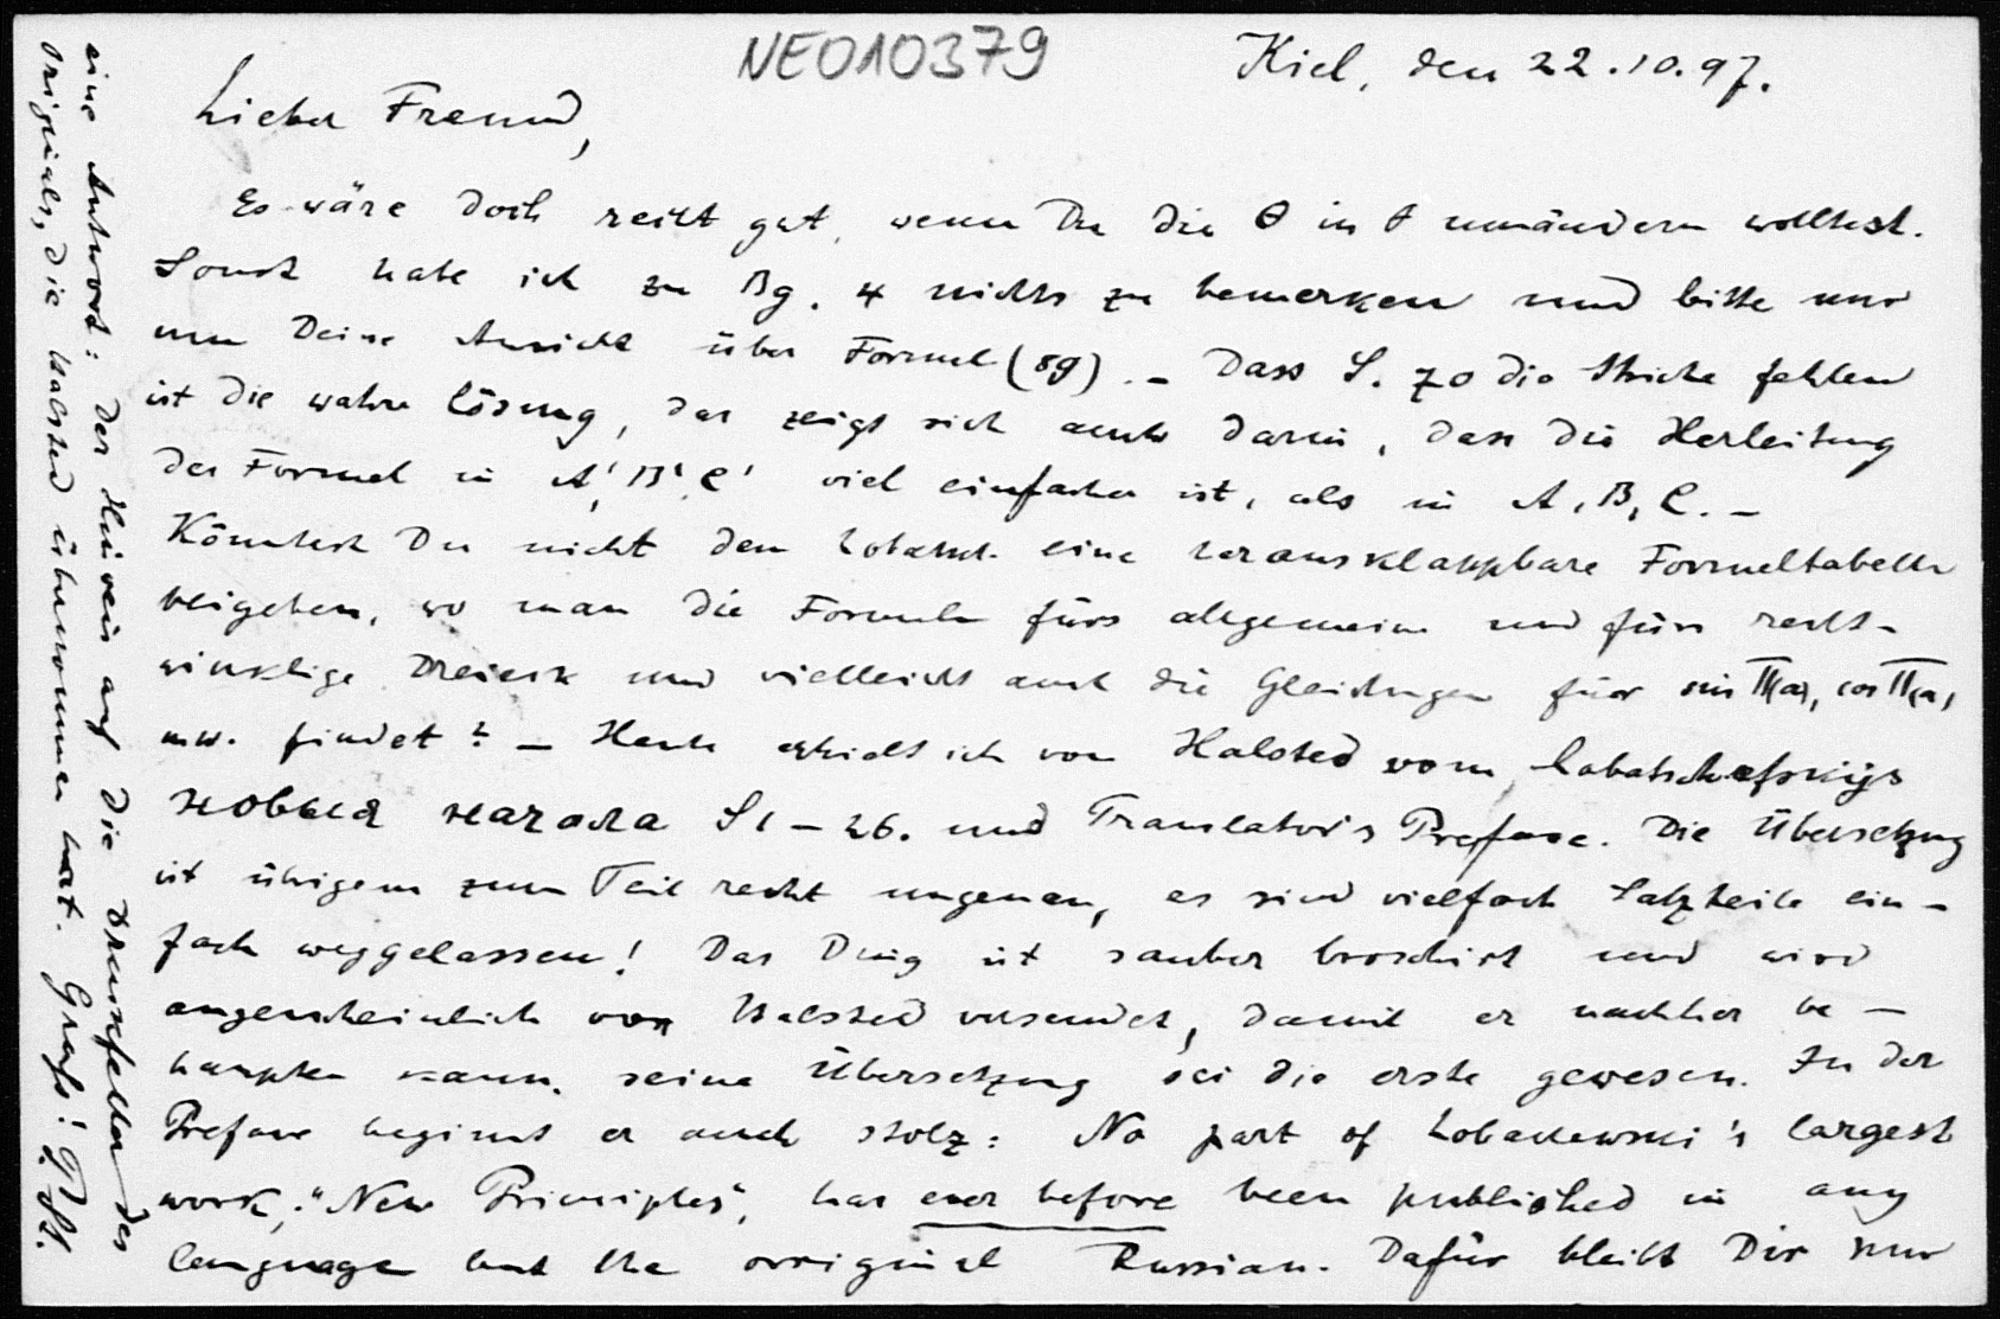 NE010379
Kiel, den 22.10.97.
Lieber Freund,
Es wäre doch recht gut, wenn Du die θ in t umändern wolltest.
Sonst habe ich zu Bg. 4 nichts zu bemerken und bitte nur
um Deine Ansicht über Formel (89). – Dass S. 70 die Striche fehlen
ist die wahre Lösung, das zeigt sich auch darin, dass die Herleitung
der Formel in A', B', C' viel einfacher ist, als in A, B, C. –
Könntest Du nicht dem Lobatsch. eine herausklappbare Formeltabelle
beigeben, wo man die Formeln fürs allgemeine und fürs recht-
winklige Dreieck und vielleicht auch die Gleichungen für sin Π(a), cos Π(a)
usw. findet? – Heute erhielt ich von Halsted vom Lobatschefskijs
новыя начала S 1–26. und Translator's Preface. Die Übersetzung
ist übrigens zum Teil recht ungenau, es sind vielfach Satzteile ein-
fach weggelassen! Das Ding ist sauber broschirt und wird
augenscheinlich von Halsted versendet, damit er nachher be-
haupten kann, seine Übersetzung sei die erste gewesen. In der
Preface beginnt er auch stolz: No part of Lobachewski's largest
work, "New Principles", has ever before been published in any
language but the original Russian. Dafür bleibt Dir nur
eine Antwort: der Hinweis auf die Druckfehler des
Originals, die Halsted übernommen hat. Gruß! P. St.